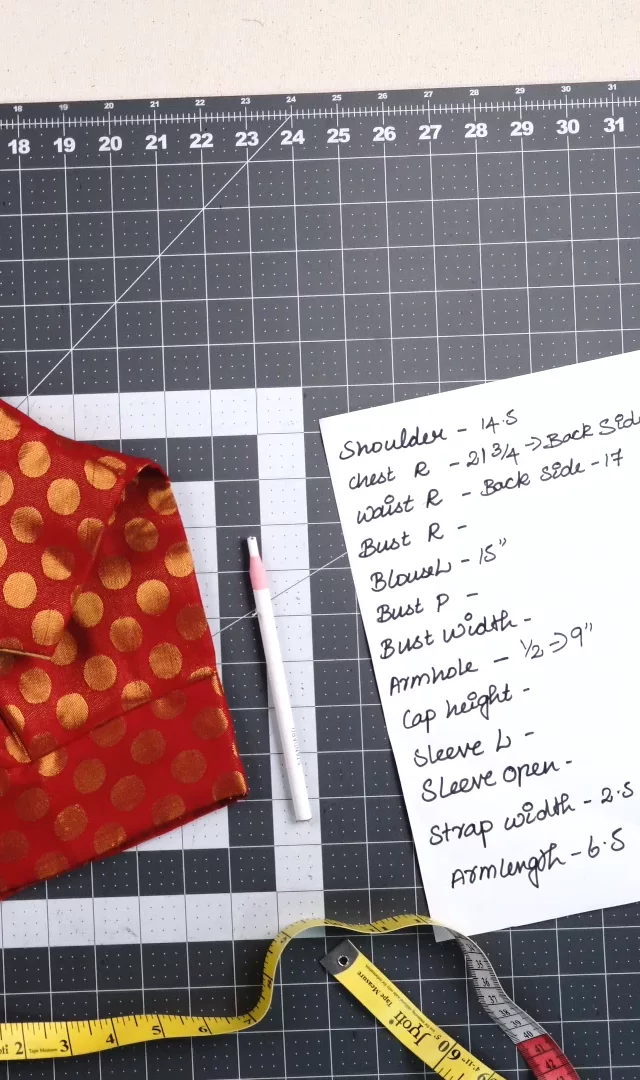 18 19 20 21 22 23 24 25 26 27 28 29 30 31
18 19 20 21 22 23 24 25 26 27 28 29 30 31
Shoulder - 14.5
Chest R - 21 3/4 → Back Side
Waist R - Back Side - 17
Bust R -
Blouse L - 15"
Bust P -
Bust width -
Armhole - 1/2 → 9"
Cap height -
Sleeve L -
Sleeve open -
Strap width - 2.5
Arm length - 6.5
2 Tape Measure 3 4 5 6 7
Jyoti Tape Measure
60
35
38
39
40
41
42